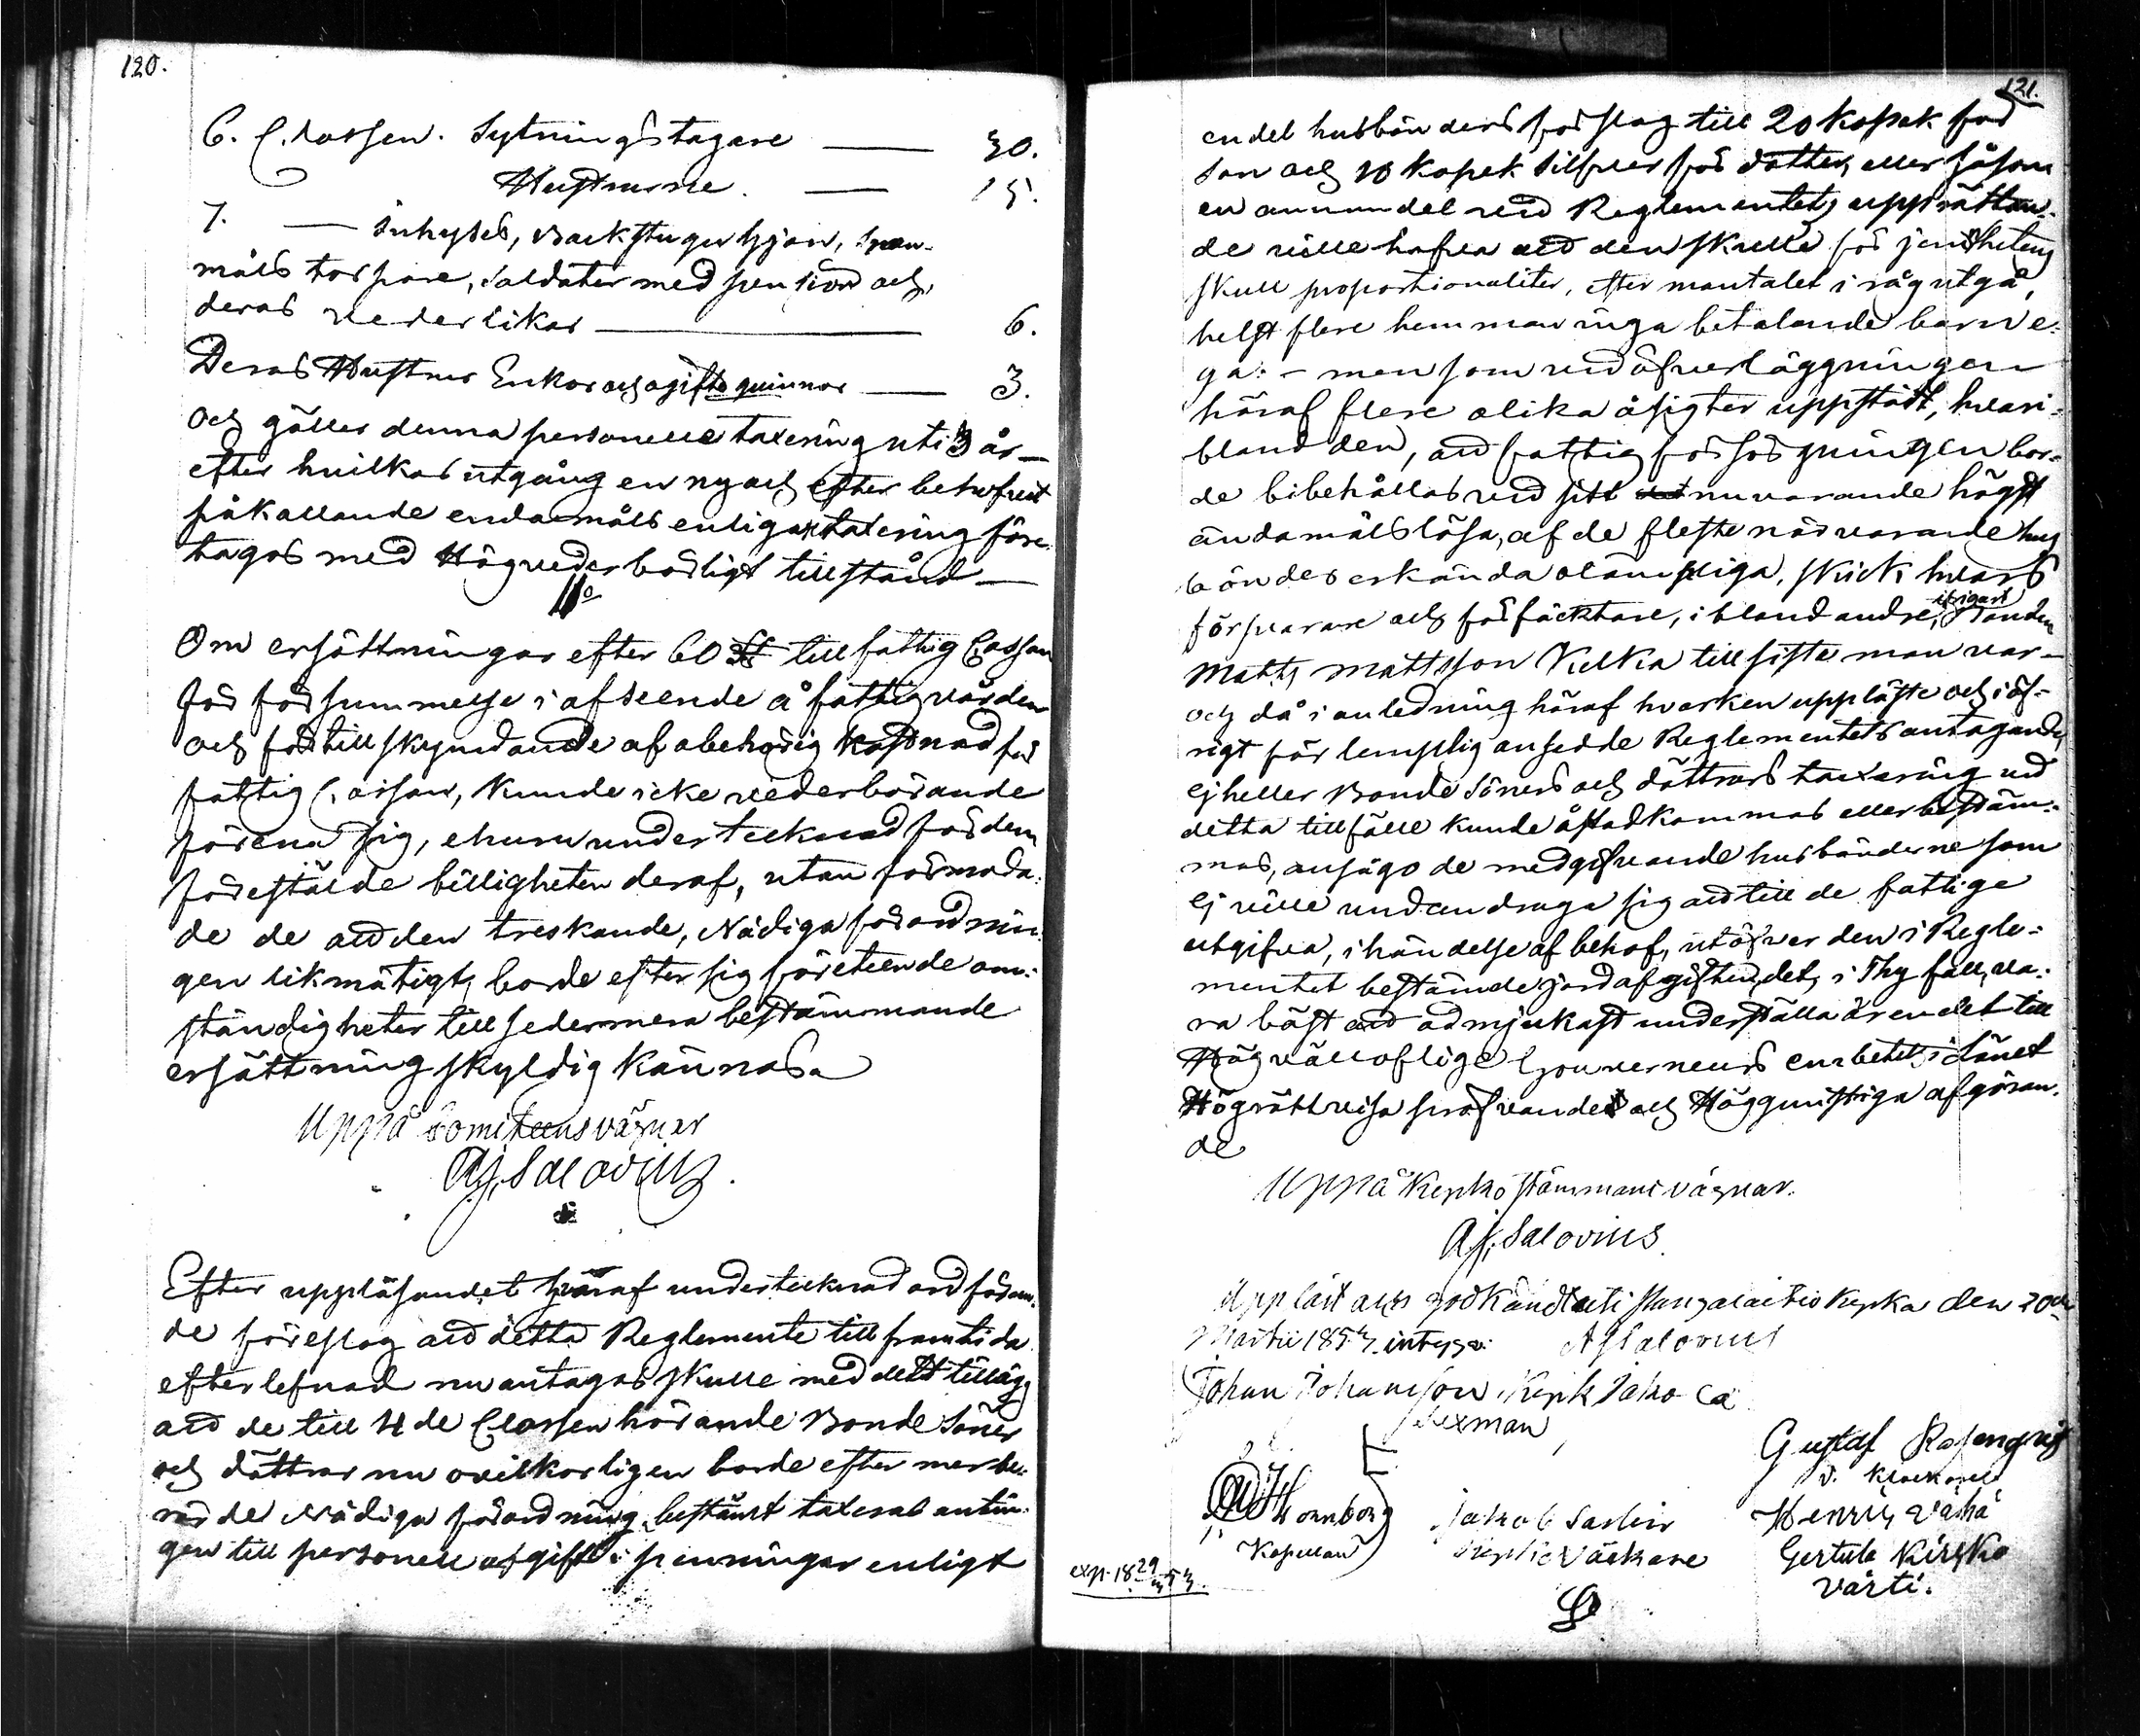 120.
6. Classen. Sytningstagare — 30.
Hustrurne. — 15.
7. — Inhyses, Backstugu hjon, Span-
måls torpare, Soldater med pension och
deras vederlikar — 6.
Deras Hustrur Enkor och ogifta quinnor — 3.
Och gäller denna personella taxering uti 3 år —
efter hvilkas utgång en ny och efter behofvet
påkallande endamåls enligare taxering före-
tages med Högvederbörligt tillstånd —
11o
Om ersättningar efter 60 § till fattig Cassan
för försummelse i afseende å fattigvården
och för tillskyndande af obehörig kostnad för
fattig Cassan, kunde icke vederbörande
förena sig, ehuru undertecknad för dem
förestälde billigheten deraf, utan förmoda-
de de att den treskande, Nådiga förordnin-
gen likmätigt, borde efter sig företeende om-
ständigheter till sedermera bestämmande
ersättning skyldig kännas.
Uppå Comiteens vägnar
A.J. Salovius.
Efter uppläsandet häraf undertecknad ordföran-
de föreslog att detta Reglemente till framtida
efterlefnad nu antagas skulle med dett tillägg
att de till 4 de Classen hörande Bonde Söner
och döttrar nu ovilkorligen borde efter merbe-
rörde Nådiga förordning bestämt taxeras antin-
gen till personell afgift i penningar enligt
121.
en del husbönders förslag till 20 kopek för
son och 10 kopek Silfver för dotter, eller såsom
en annan del vid Reglementets upprättan-
de ville hafva att den skulle för jemnhetens
skull proportionaliter, efter mantalet i råg utgå,
helst flere hemman inga betalande barn e-
ga: – men som vid öfverläggningen
häraf flere olika åsigter uppstått, hvari-
bland den, att fattig försörgningen bor-
de bibehållas vid sitt nuvarande högst
ändamålslösa, af de fleste närvarande hus
bönder erkända olämpliga, skick hvars
försvarare och förfäcktare, ibland andre, ifrigast Bonden
Matts Mattsson Kulka till siste man var —
och då i anledning häraf hvarken uppläste och i öf-
rigt för lempelig ansedde Reglementets antagande,
ej heller Bonde Söners och döttrars taxering vid
detta tillfälle kunde åstadkommas eller bestäm-
mas, ansågo de medgifvande husbönderne som
ej ville undandraga sig att till de fattige
utgifva, i händelse af behof, utöfver den i Regle-
mentet bestämde jordafgiften, det, i Thy fall, va-
ra bäst att ödmjukast underställa ärendet till
Högvälloflige Gouverneurs embetet i Länet
Högrättvisa pröfvande och Höggunstiga afgöran-
de
Uppå Kyrko stämmans vägnar.
A.J. Salovius.
Uppläst och godkändt uti Kyrka den 20de
Martii 1853. intygar: A J Salovius
Johan Johansson
Sexman
Gustaf Rosenqvist
v. Klockare
Kapellan
Jakob
Väckare
Henrik Vähä
Gertula Kirsko
Värti.
exp. 18 29/3 53.